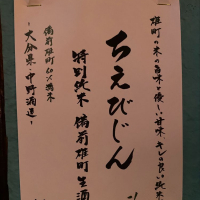 雄町の米の旨味と優しい甘味、キレの良い純米
ちえびじん
特別純米 備前雄町 生酒
備前雄町60%精米
〜大分県・中野酒造〜